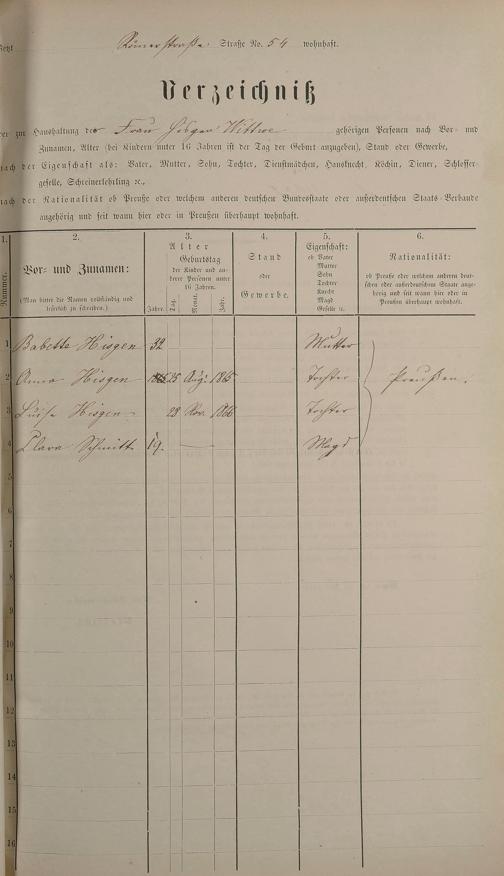 Jetzt Römerstraße Straße No. 54 wohnhaft.
Verzeichniß
der zur Haushaltung der Frau Hisgen Wittwe gehörigen Personen nach Vor- und
Zunamen, Alter (bei Kindern unter 16 Jahren ist der Tag der Geburt anzugeben), Stand oder Gewerbe,
nach der Eigenschaft als: Vater, Mutter, Sohn, Tochter, Dienstmädchen, Hausknecht, Köchin, Diener, Schlosser-
geselle, Schreinerlehrling ꝛc.,
nach der Nationalität ob Preuße oder welchem anderen deutschen Bundesstaate oder außerdeutschen Staats-Verbande
angehörig und seit wann hier oder in Preußen überhaupt wohnhaft.
1. 2. 3. 4. 5. 6.
Nummer.
Vor- und Zunamen:
(Man bittet die Namen vollständig und
leserlich zu schreiben.)
Alter
Geburtstag
der Kinder und an-
derer Personen unter
16 Jahren.
Jahre. Tag. Monat. Jahr.
Stand
oder
Gewerbe.
Eigenschaft:
ob Vater
Mutter
Sohn
Tochter
Knecht
Magd
Geselle ꝛc.
Nationalität:
ob Preuße oder welchem anderen deut-
schen oder außerdeutschen Staate ange-
hörig und seit wann hier oder in
Preußen überhaupt wohnhaft.
1 Babette Hisgen 32 Mutter
2 Anna Hisgen 25 Aug. 1865 Tochter Preußen.
3 Luise Hisgen 28 Nov. 1866 Tochter
4 Clara Schmitt 19. — Magd
5
6
7
8
9
10
11
12
13
14
15
16